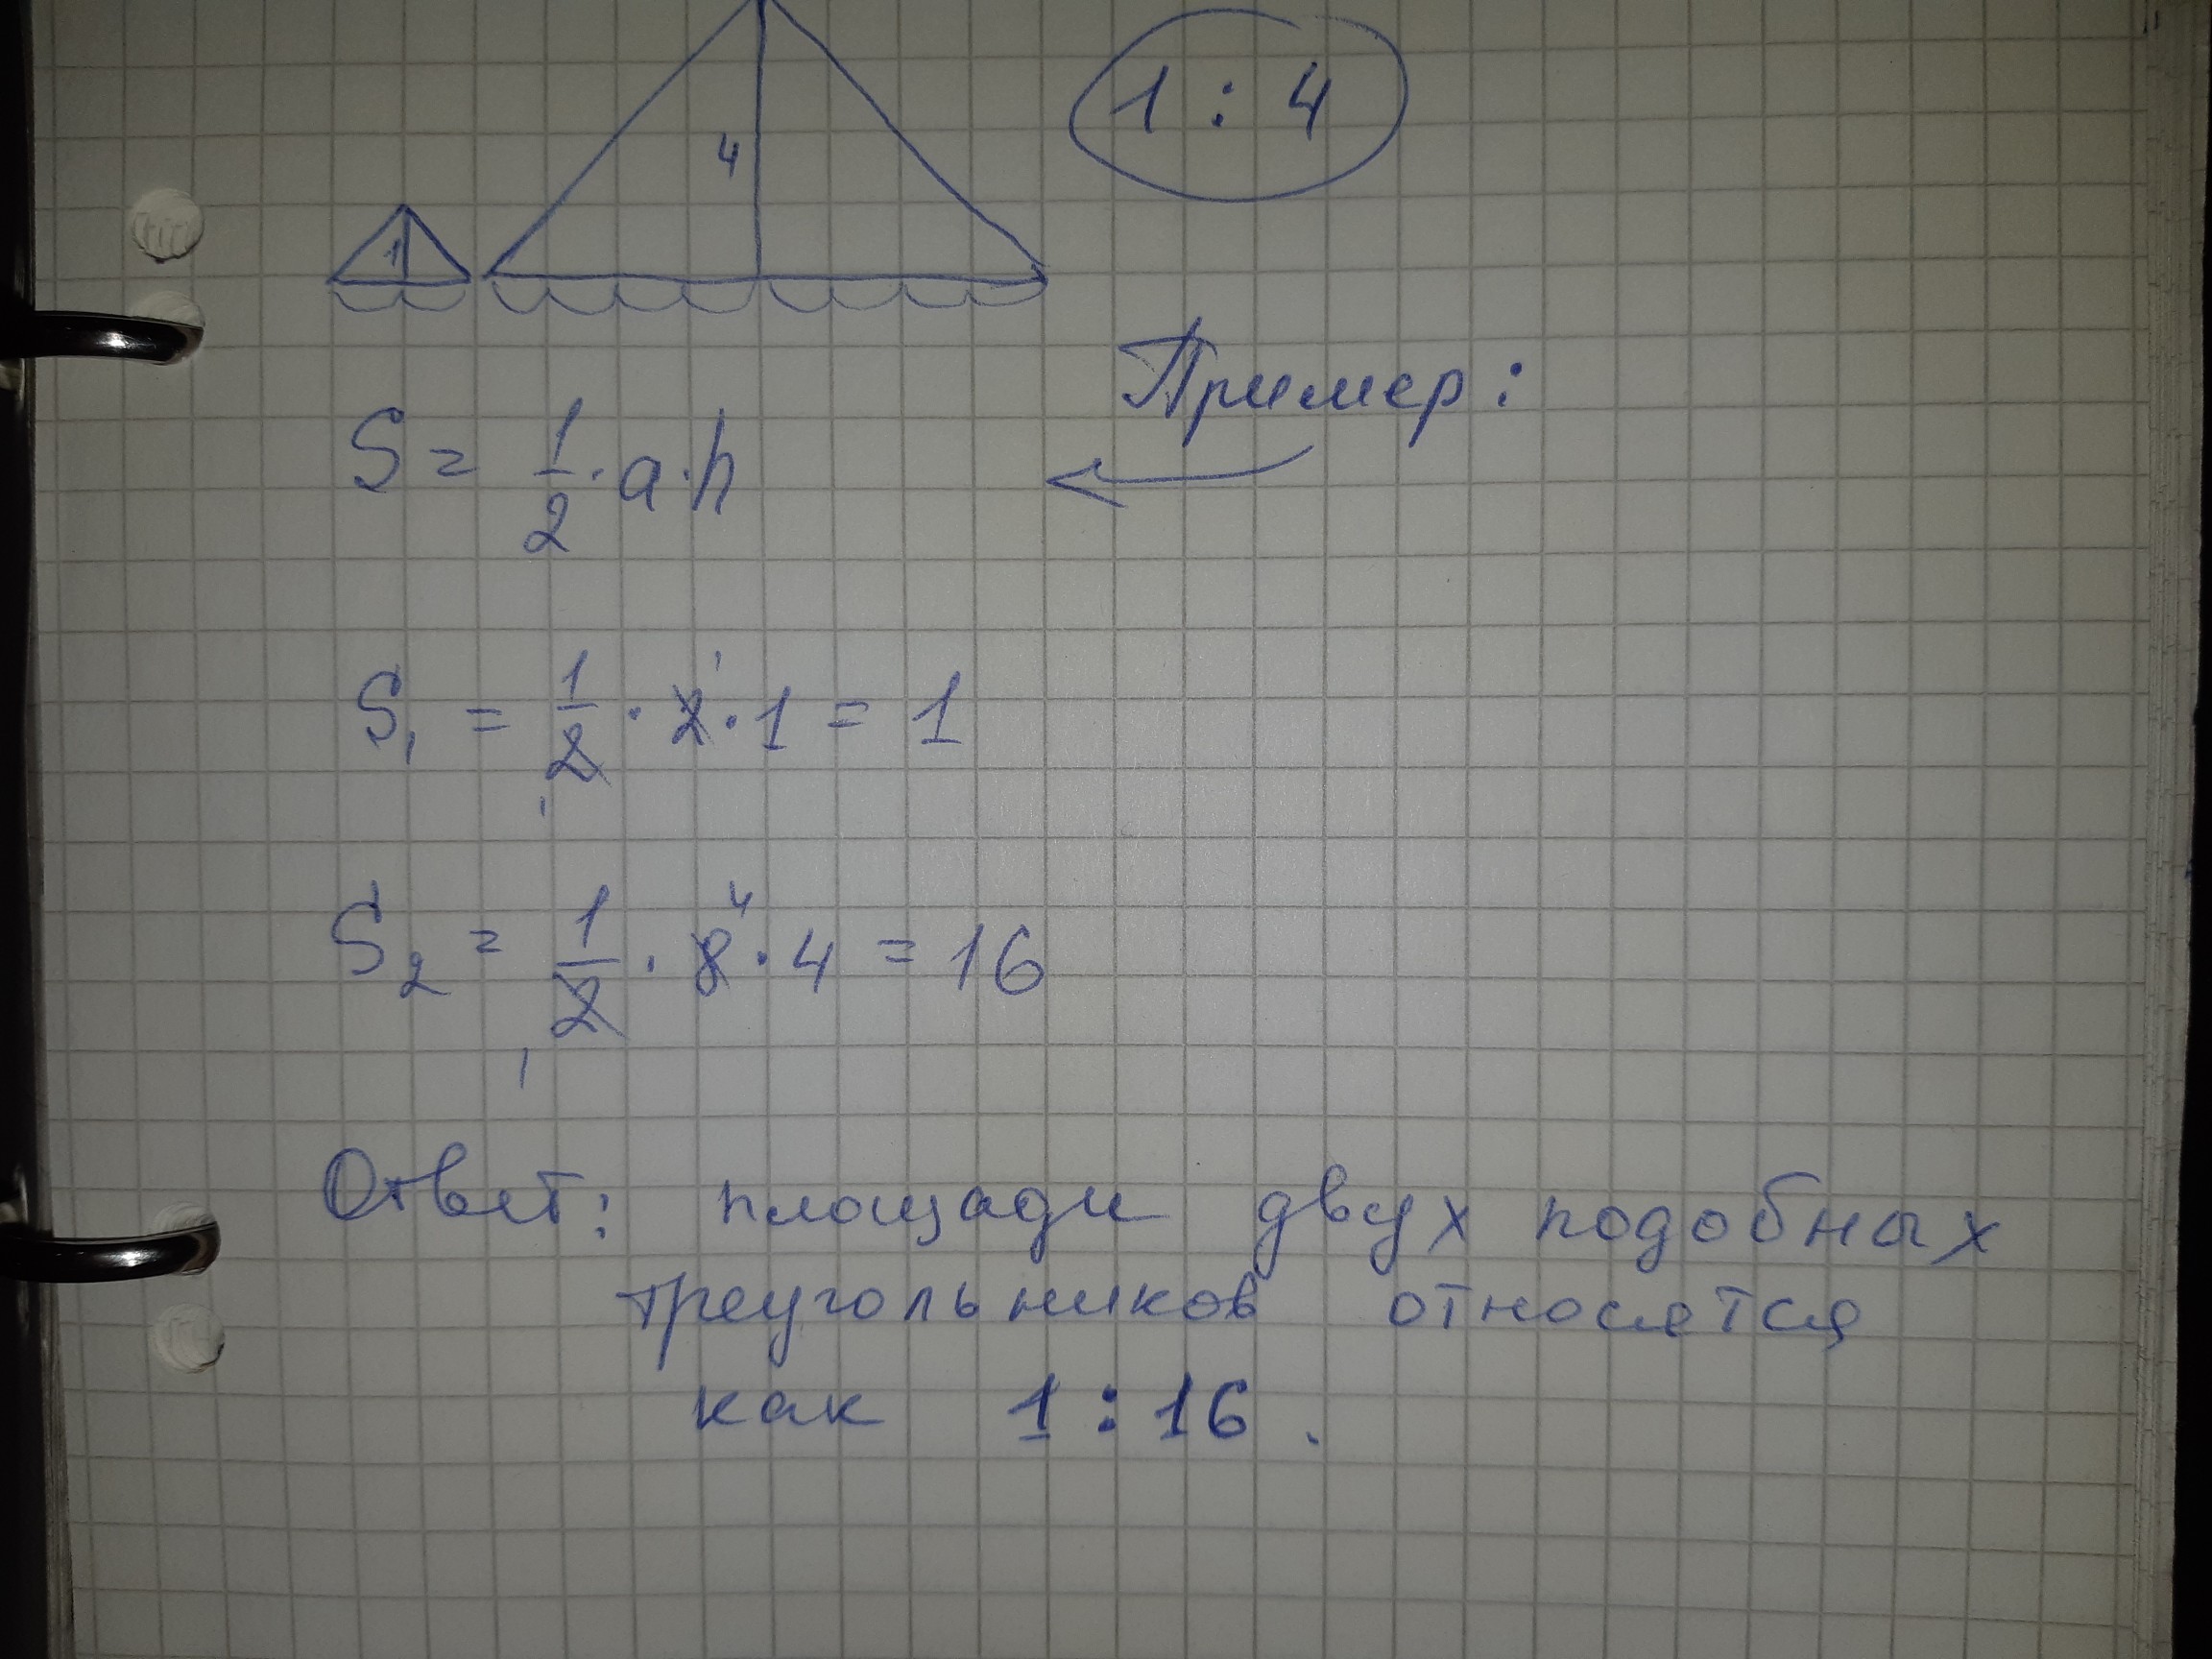 1 : 4
4
1
Пример:
S = 1/2 · a · h
S₁ = 1/2 · 2 · 1 = 1
1
1
S₂ = 1/2 · 8 · 4 = 16
4
1
Ответ: площади двух подобных
треугольников относятся
как 1 : 16.